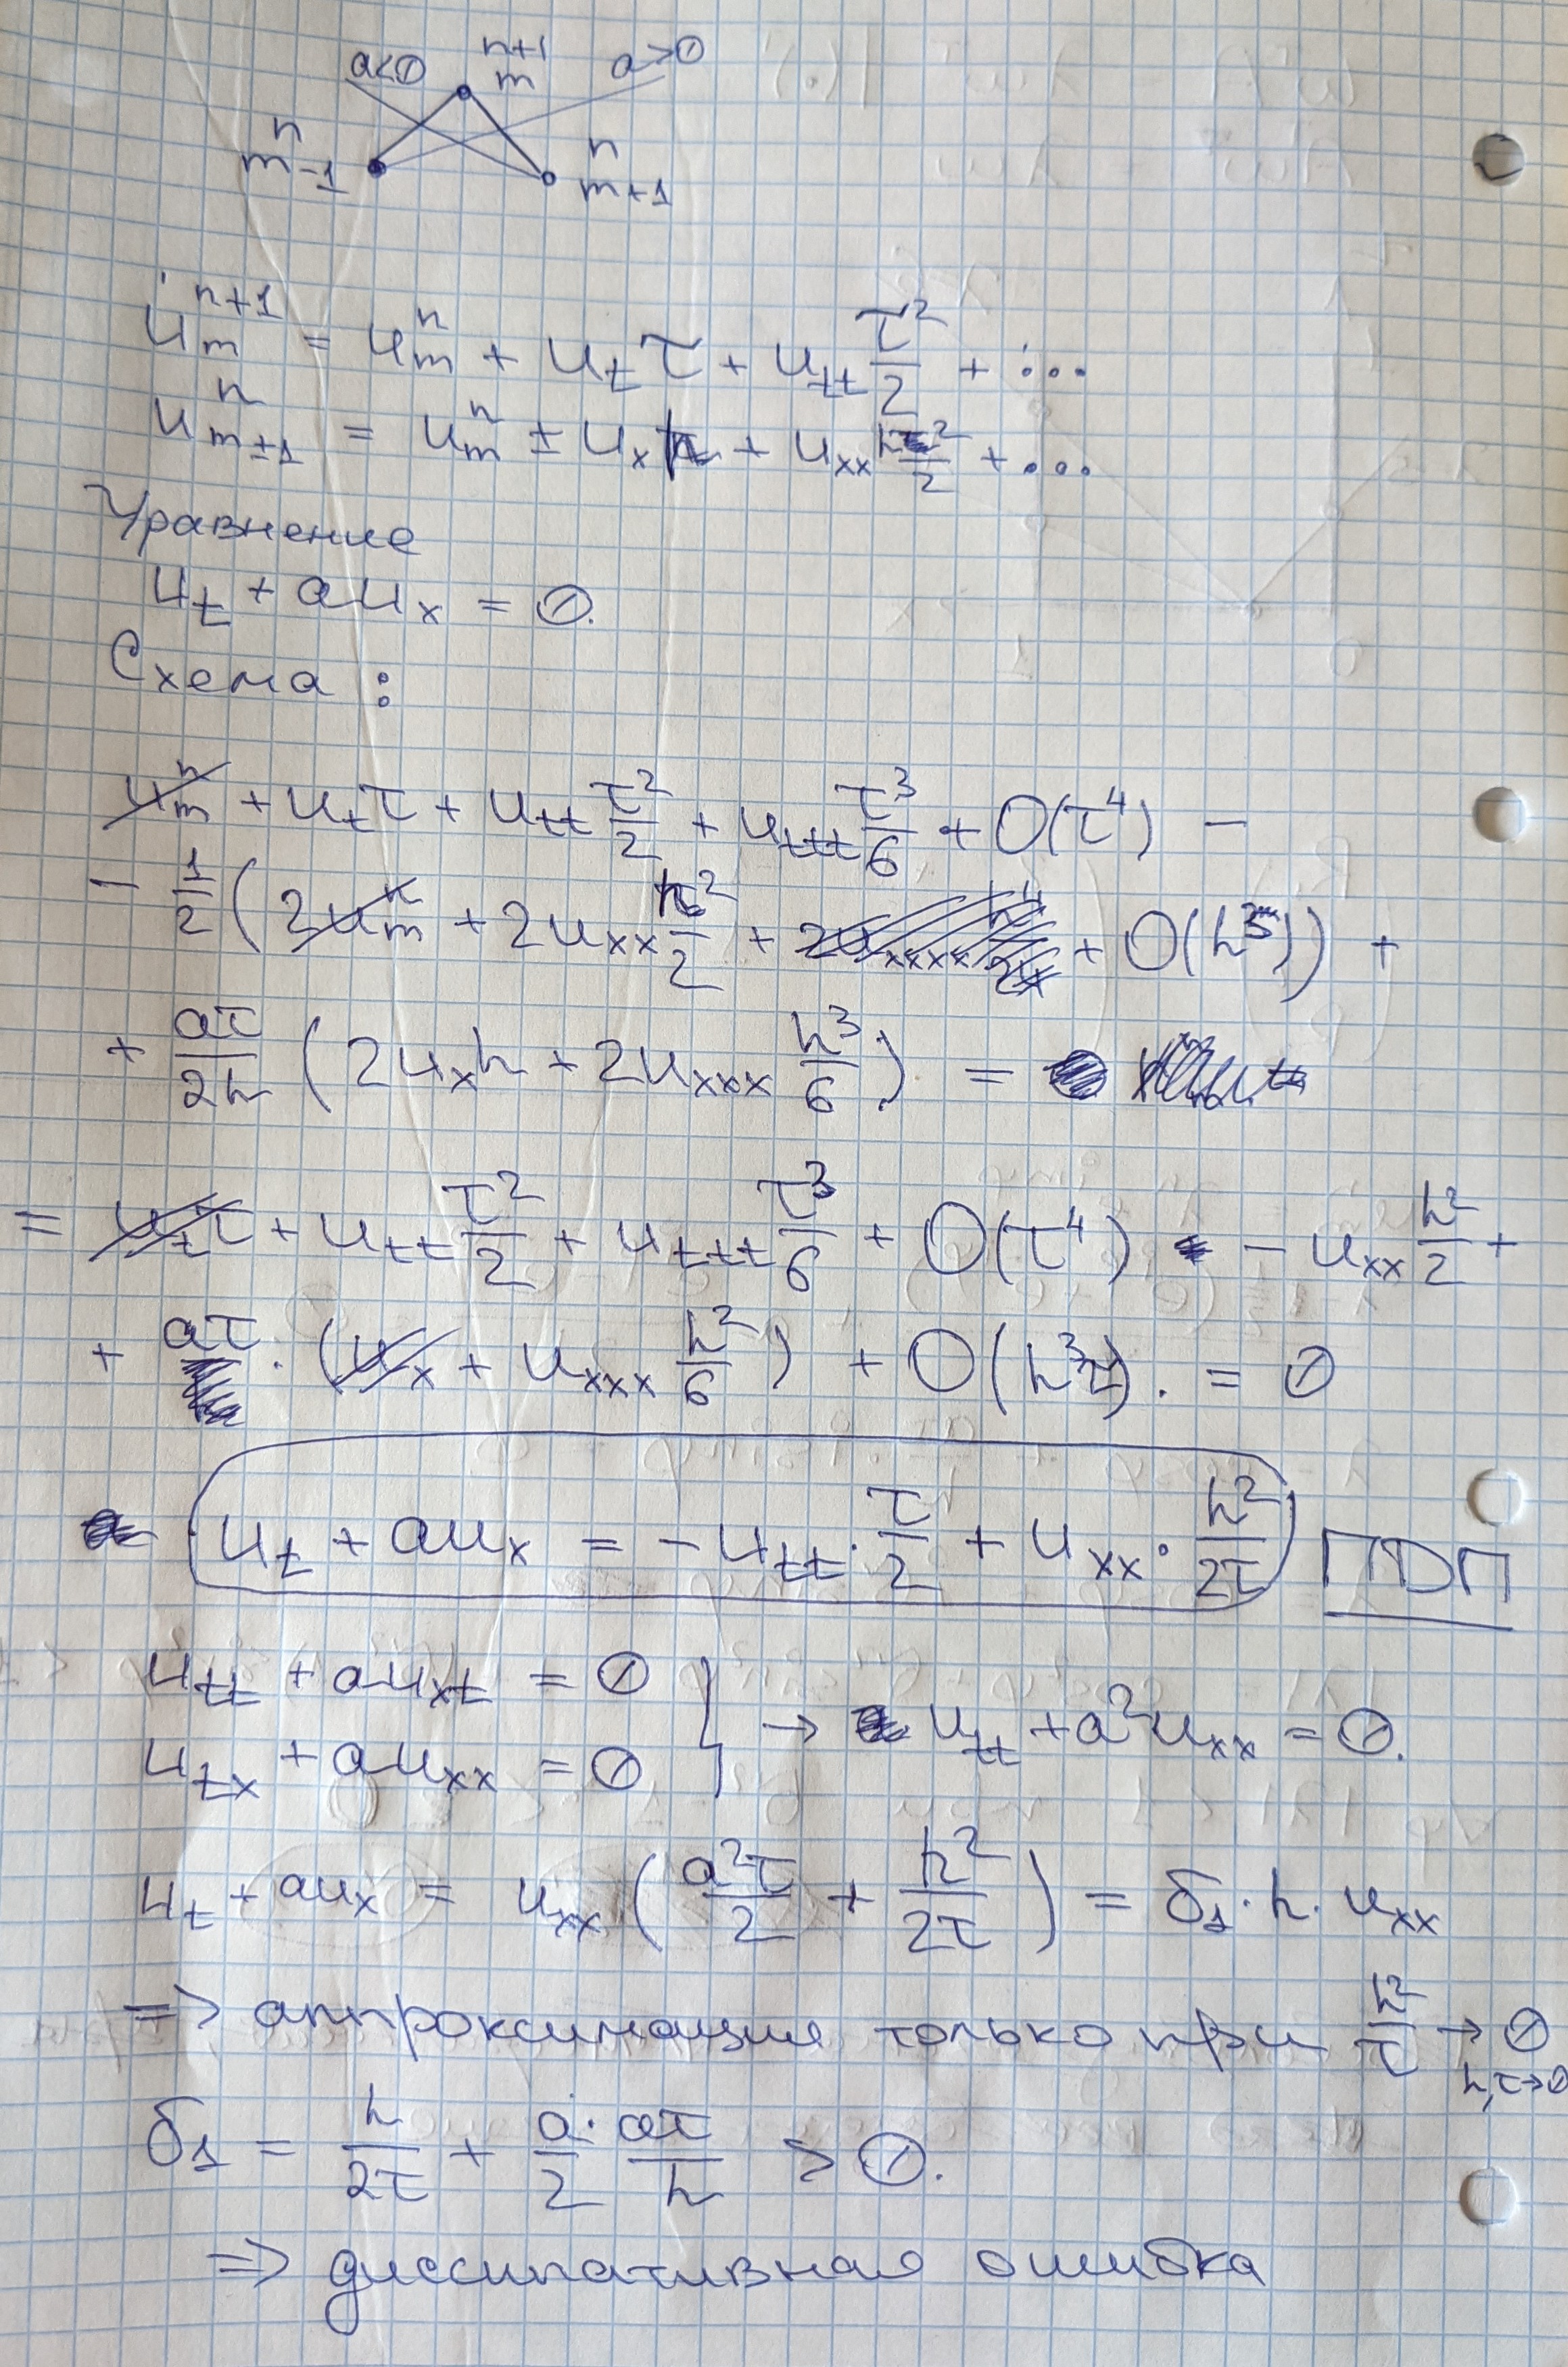 a<0 n+1 a>0
m
n n
m-1 m+1
u_m^{n+1} = u_m^n + u_t τ + u_tt τ²/2 + ...
u_{m±1}^n = u_m^n ± u_x h + u_xx h²/2 + ...
Уравнение
u_t + au_x = 0.
Схема :
u_m^n + u_t τ + u_tt τ²/2 + u_ttt τ³/6 + O(τ⁴) -
- 1/2 (2u_m^n + 2u_xx h²/2 + O(h³)) +
+ aτ/2h (2u_x h + 2u_xxx h³/6) =
= u_t τ + u_tt τ²/2 + u_ttt τ³/6 + O(τ⁴) - u_xx h²/2 +
+ aτ · (u_x + u_xxx h²/6) + O(h³). = 0
u_t + au_x = - u_tt · τ/2 + u_xx · h²/2τ ПДП
u_tt + au_xt = 0
u_tx + au_xx = 0 } → u_tt + a²u_xx = 0.
u_t + au_x = u_xx (a²τ/2 + h²/2τ) = б₁ · h · u_xx
=> аппроксимация только при h²/τ → 0
h,τ→0
б₁ = h/2τ + a/2 · aτ/h > 0.
=> диссипативная ошибка